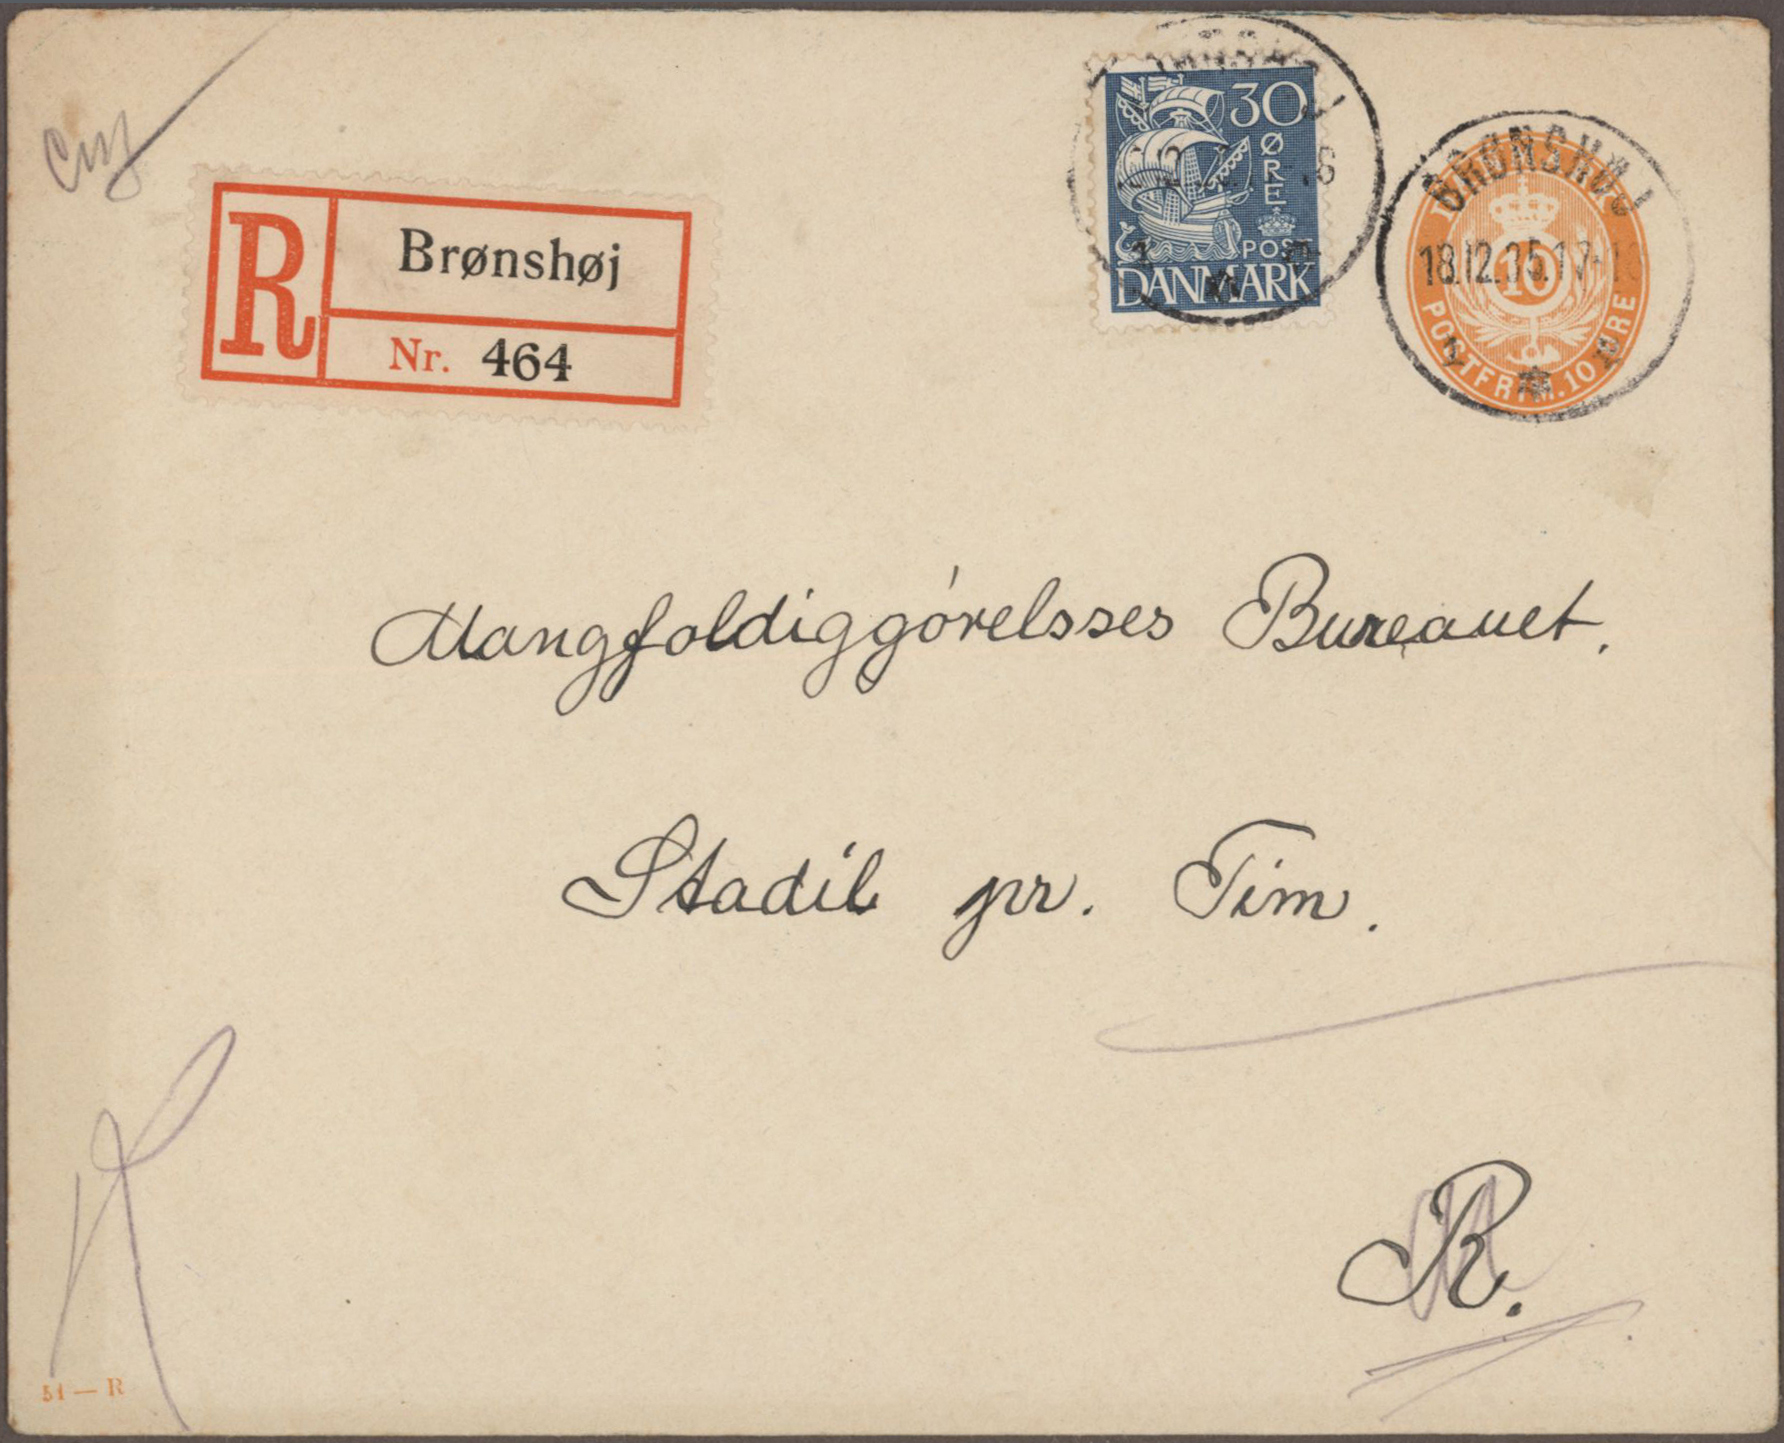 R
Brønshøj
Nr. 464
30
ØRE
POST
DANMARK
BRØNSHØJ
18.12.35.17-18
10
POSTFRIM. 10 ØRE
Mangfoldiggórelsses Bureauet.
Stadil pr. Tim.
R.
51 — R